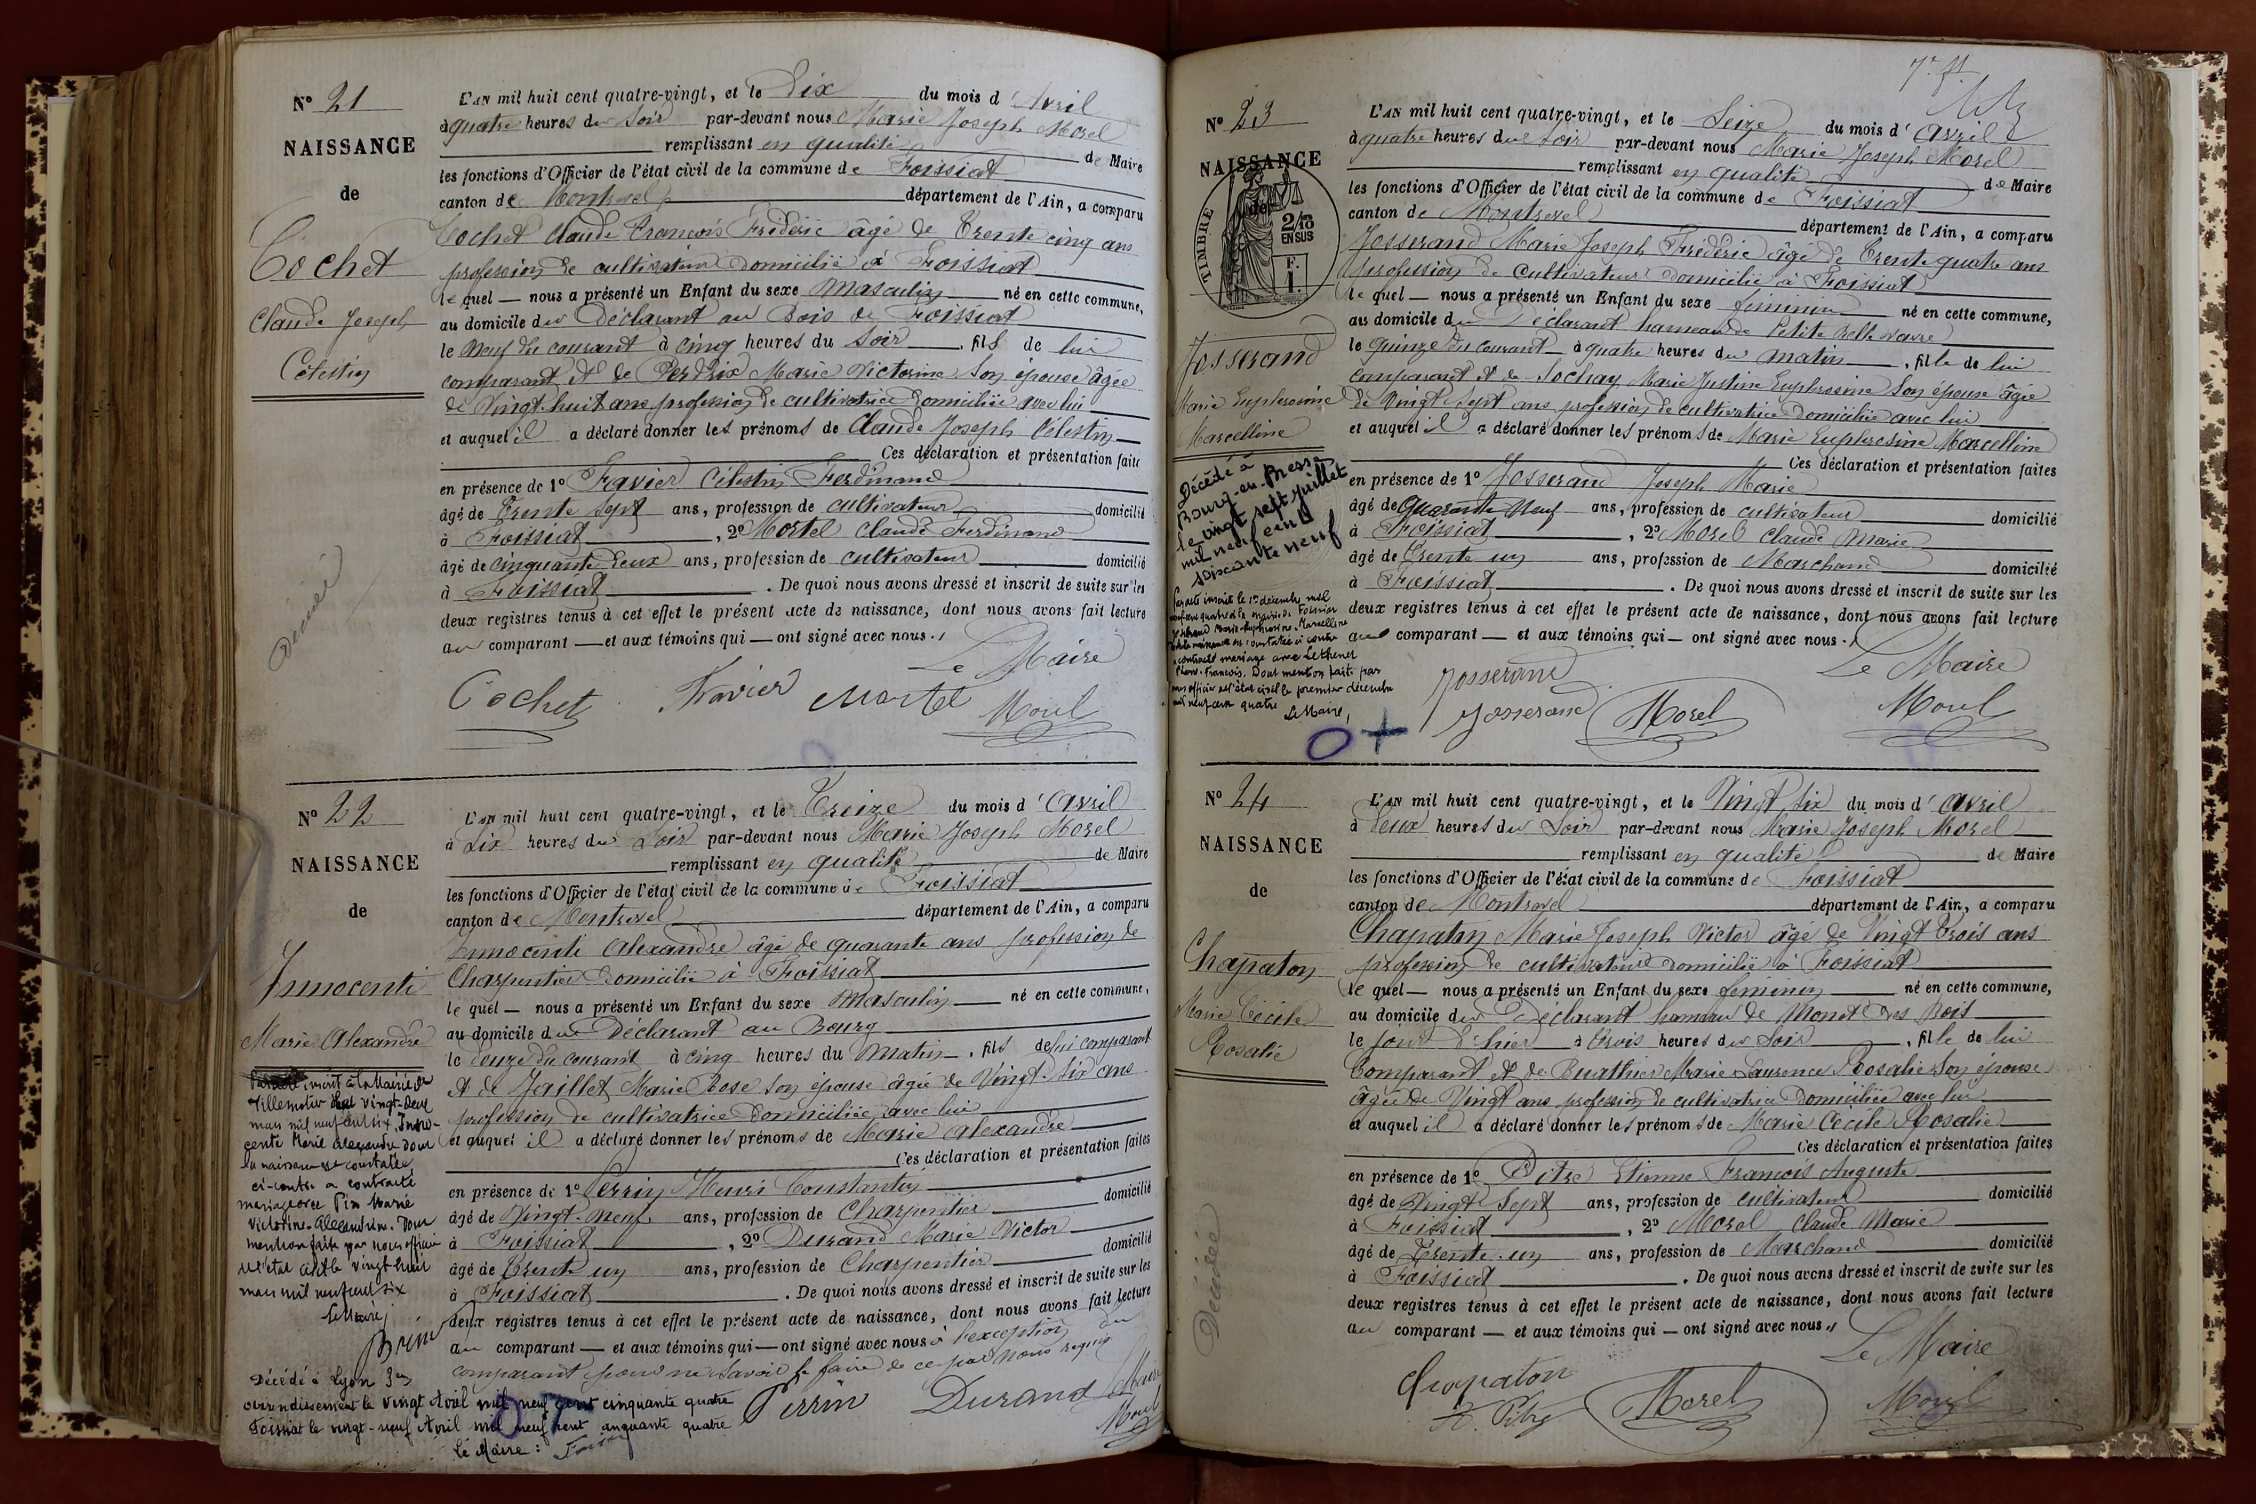 N° 21
NAISSANCE
de
Cochet
Claude Joseph
Célestin
Décédé
L'AN mil huit cent quatre-vingt, et le Dix du mois d'Avril
à quatre heures du Soir par-devant nous Marie Joseph Morel
remplissant en qualité de Maire
les fonctions d'Officier de l'état civil de la commune de Foissiat
canton de Montrevel département de l'Ain, a comparu
Cochet Claude François Frédéric âgé de Trente cinq ans
profession de cultivateur domicilié à Foissiat
le quel — nous a présenté un Enfant du sexe Masculin né en cette commune,
au domicile du Déclarant au Bois de Foissiat
le Neuf du courant à cinq heures du Soir, fils de lui
comparant et de Perdrix Marie Victorine Son épouse âgée
de Vingt-huit ans profession de cultivatrice domiciliée avec lui
et auquel il a déclaré donner les prénoms de Claude Joseph Célestin
Ces déclaration et présentation faite
en présence de 1° Favier Célestin Ferdinand
âgé de Trente Sept ans, profession de cultivateur domicilié
à Foissiat, 2° Mortel Claude Ferdinand
âgé de cinquante Deux ans, profession de cultivateur domicilié
à Foissiat. De quoi nous avons dressé et inscrit de suite sur les
deux registres tenus à cet effet le présent acte de naissance, dont nous avons fait lecture
au comparant — et aux témoins qui — ont signé avec nous.
Le Maire
Cochet Favier Mortel Morel
N° 22
NAISSANCE
de
Innocenti
Marie Alexandre
L'AN mil huit cent quatre-vingt, et le Treize du mois d'Avril
à Six heures du Soir par-devant nous Marie Joseph Morel
remplissant en qualité de Maire
les fonctions d'Officier de l'état civil de la commune de Foissiat
canton de Montrevel département de l'Ain, a comparu
Innocenti Alexandre âgé de quarante ans profession de
Charpentier domicilié à Foissiat
le quel — nous a présenté un Enfant du sexe Masculin né en cette commune,
au domicile du Déclarant au Bourg
le Douze du courant à cinq heures du Matin, fils de lui comparant
et de Jaillet Marie Rose Son épouse âgée de Vingt-Six ans
profession de cultivatrice domiciliée avec lui
et auquel il a déclaré donner les prénoms de Marie Alexandre
Ces déclaration et présentation faites
en présence de 1° Perrin Henri Constantin
âgé de Vingt-Neuf ans, profession de Charpentier domicilié
à Foissiat, 2° Durand Marie Victor
âgé de Trente un ans, profession de Charpentier domicilié
à Foissiat. De quoi nous avons dressé et inscrit de suite sur les
deux registres tenus à cet effet le présent acte de naissance, dont nous avons fait lecture
au comparant — et aux témoins qui — ont signé avec nous à l'exception du
comparant pour ne savoir le faire de ce par nous requis
Perrin Durand Le Maire
Morel
Par acte inscrit à la Mairie de
Villemotier le vingt-deux
mars mil neuf cent six, Inno-
centi Marie Alexandre dont
la naissance est constatée
ci-contre a contracté
mariage avec Pin Marie
Victorine-Alexandrine. Dont
mention faite par nous officier
de l'état civil le vingt huit
mars mil neuf cent six
Le Maire,
Décédé à Lyon 3e
arrondissement le vingt Avril mil neuf cent cinquante quatre
Foissiat le vingt-neuf Avril mil neuf cent cinquante quatre
Le Maire:
N° 23
NAISSANCE
de
TIMBRE
2/10
EN SUS
F.
1.
Josserand
Marie Euphrosine
Marcelline
Décédé à
Bourg-en-Bresse
le vingt sept juillet
mil neuf cent
soixante neuf
Par acte inscrit le 1er décembre mil
neuf cent quatre à la mairie de Foissiat
Josserand Marie-Euphrosine-Marcelline
dont la naissance est constatée ci-contre
a contracté mariage avec
François. Dont mention faite par
nous officier de l'état civil le premier décembre
mil neuf cent quatre
Le Maire,
L'AN mil huit cent quatre-vingt, et le Seize du mois d'Avril
à quatre heures du Soir par-devant nous Marie Joseph Morel
remplissant en qualité de Maire
les fonctions d'Officier de l'état civil de la commune de Foissiat
canton de Montrevel département de l'Ain, a comparu
Josserand Marie Joseph Frédéric âgé de Trente quatre ans
profession de Cultivateur domicilié à Foissiat
le quel — nous a présenté un Enfant du sexe féminin né en cette commune,
au domicile du Déclarant hameau de Petite
le Quinze du courant à quatre heures du matin, fille de lui
comparant et de Sochay Marie Justine Euphrosine Son épouse âgée
de Vingt-sept ans profession de cultivatrice domiciliée avec lui
et auquel il a déclaré donner les prénoms de Marie Euphrosine Marcelline
Ces déclaration et présentation faites
en présence de 1° Josserand Joseph Marie
âgé de Quarante Neuf ans, profession de cultivateur domicilié
à Foissiat, 2° Morel Claude Marie
âgé de Trente un ans, profession de Marchand domicilié
à Foissiat. De quoi nous avons dressé et inscrit de suite sur les
deux registres tenus à cet effet le présent acte de naissance, dont nous avons fait lecture
au comparant — et aux témoins qui — ont signé avec nous.
Le Maire
Josserand
Josserand Morel Morel
N° 24
NAISSANCE
de
Chapaton
Marie Cécile
Rosalie
Décédée
L'AN mil huit cent quatre-vingt, et le Vingt Six du mois d'Avril
à Deux heures du Soir par-devant nous Marie Joseph Morel
remplissant en qualité de Maire
les fonctions d'Officier de l'état civil de la commune de Foissiat
canton de Montrevel département de l'Ain, a comparu
Chapaton Marie Joseph Victor âgé de Vingt Trois ans
profession de cultivateur domicilié à Foissiat
le quel — nous a présenté un Enfant du sexe féminin né en cette commune,
au domicile du Déclarant hameau de
le jour d'hier à Trois heures du Soir, fille de lui
Comparant et de Buathier Marie Laurence Rosalie Son épouse
âgée de Vingt ans profession de cultivatrice Domiciliée avec lui
et auquel il a déclaré donner les prénoms de Marie Cécile Rosalie
Ces déclaration et présentation faites
en présence de 1° Pitre Etienne François Auguste
âgé de Vingt Sept ans, profession de cultivateur domicilié
à Foissiat, 2° Morel Claude Marie
âgé de Trente-un ans, profession de Marchand domicilié
à Foissiat. De quoi nous avons dressé et inscrit de suite sur les
deux registres tenus à cet effet le présent acte de naissance, dont nous avons fait lecture
au comparant — et aux témoins qui — ont signé avec nous.
Le Maire
Chapaton
Morel Morel